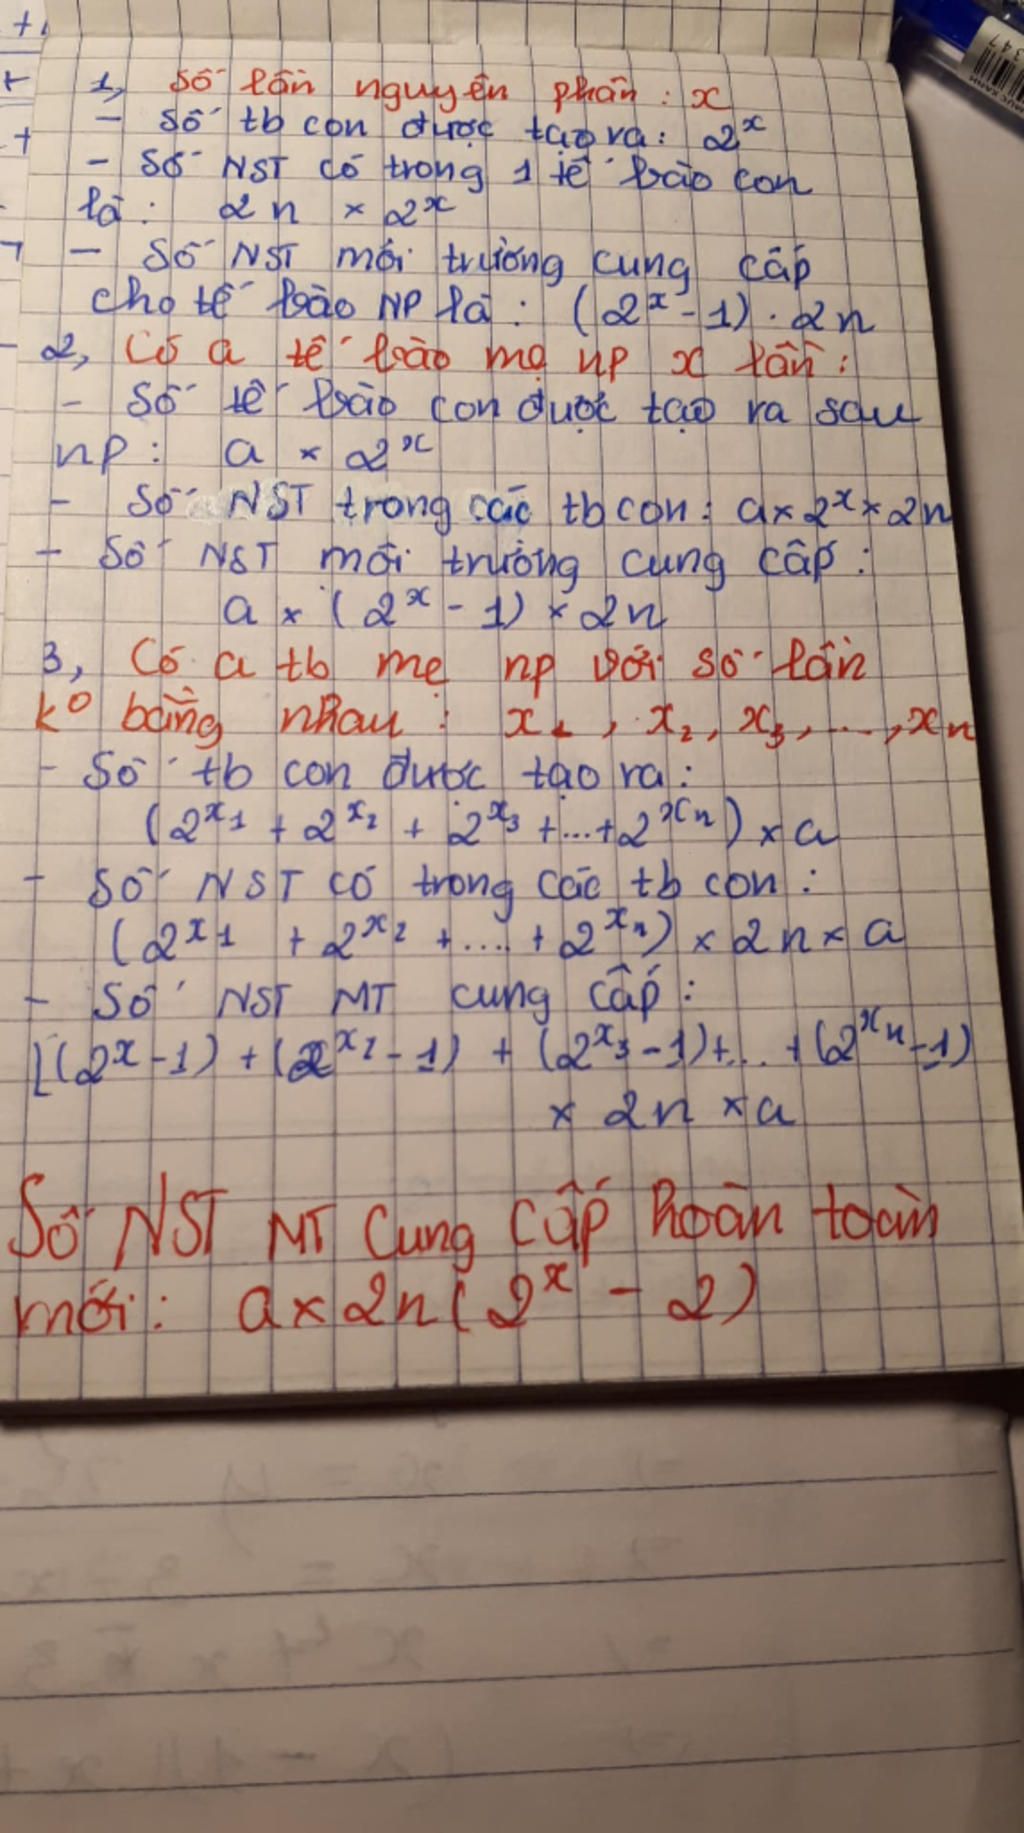 1, Số lần nguyên phân : x
- Số tb con được tạo ra: 2^x
- Số NST có trong 1 tế bào con
là : 2n × 2^x
- Số NST môi trường cung cấp
cho tế bào NP là : (2^x - 1) . 2n
2, Có a tế bào mẹ np x lần :
- Số tế bào con được tạo ra sau
np : a × 2^x
- Số NST trong các tb con : a × 2^x × 2n
- Số NST môi trường cung cấp :
a × (2^x - 1) × 2n
3, Có a tb mẹ np với số lần
k° bằng nhau : x₁ , x₂, x₃, ..., xn
- Số tb con được tạo ra :
(2^x1 + 2^x2 + 2^x3 + ... + 2^xn) × a
- Số NST có trong các tb con :
(2^x1 + 2^x2 + .... + 2^xn) × 2n × a
- Số NST MT cung cấp :
[(2^x - 1) + (2^x2 - 1) + (2^x3 - 1) + ... + (2^xn - 1)
× 2n × a
Số NST MT cung cấp hoàn toàn
mới : a × 2n (2^x - 2)